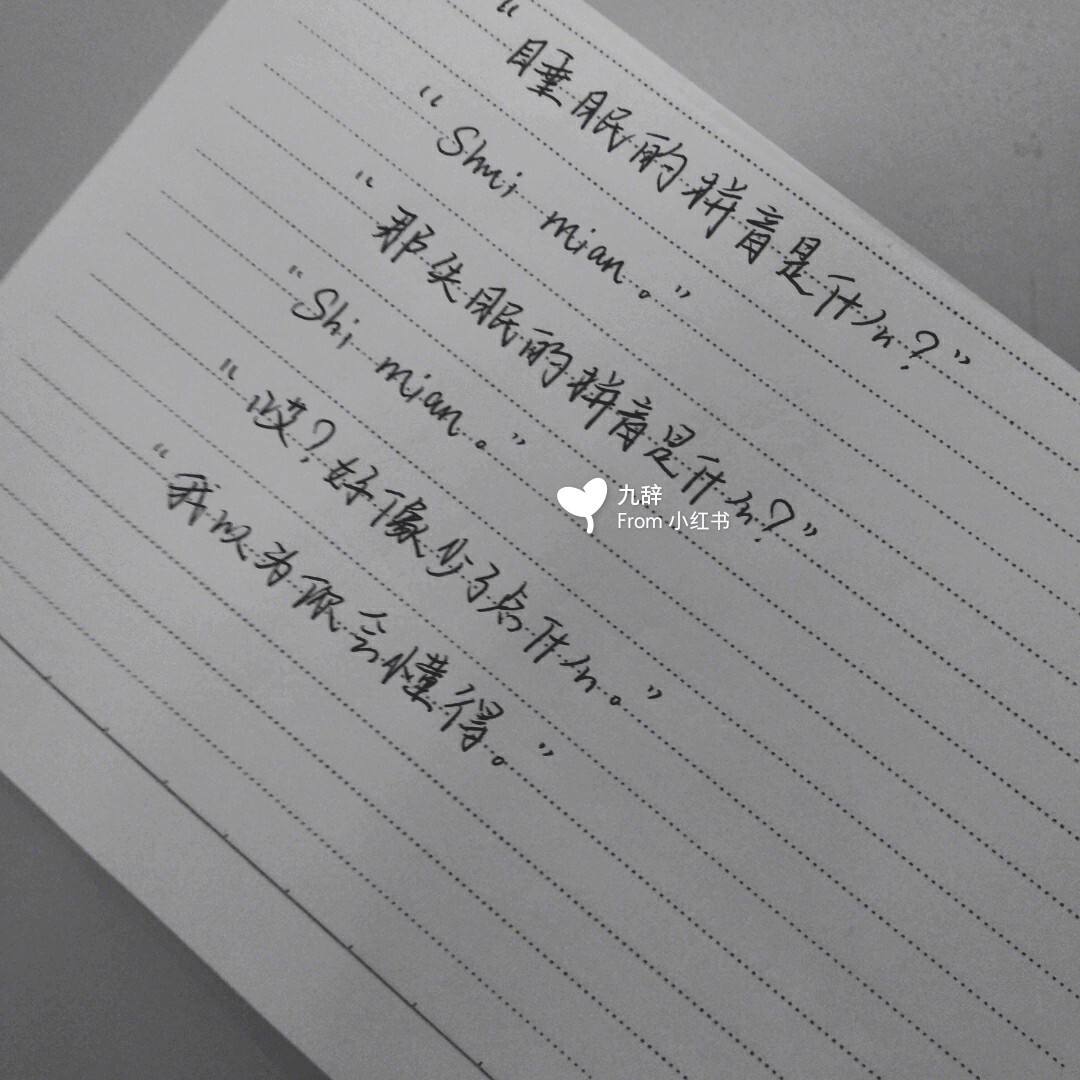 “睡眠的拼音是什么?”
“Shui mian。”
“那失眠的拼音是什么?”
“Shi mian。”
“哎?好像少了点什么。”
“我以为你会懂得。”
九辞
From 小红书